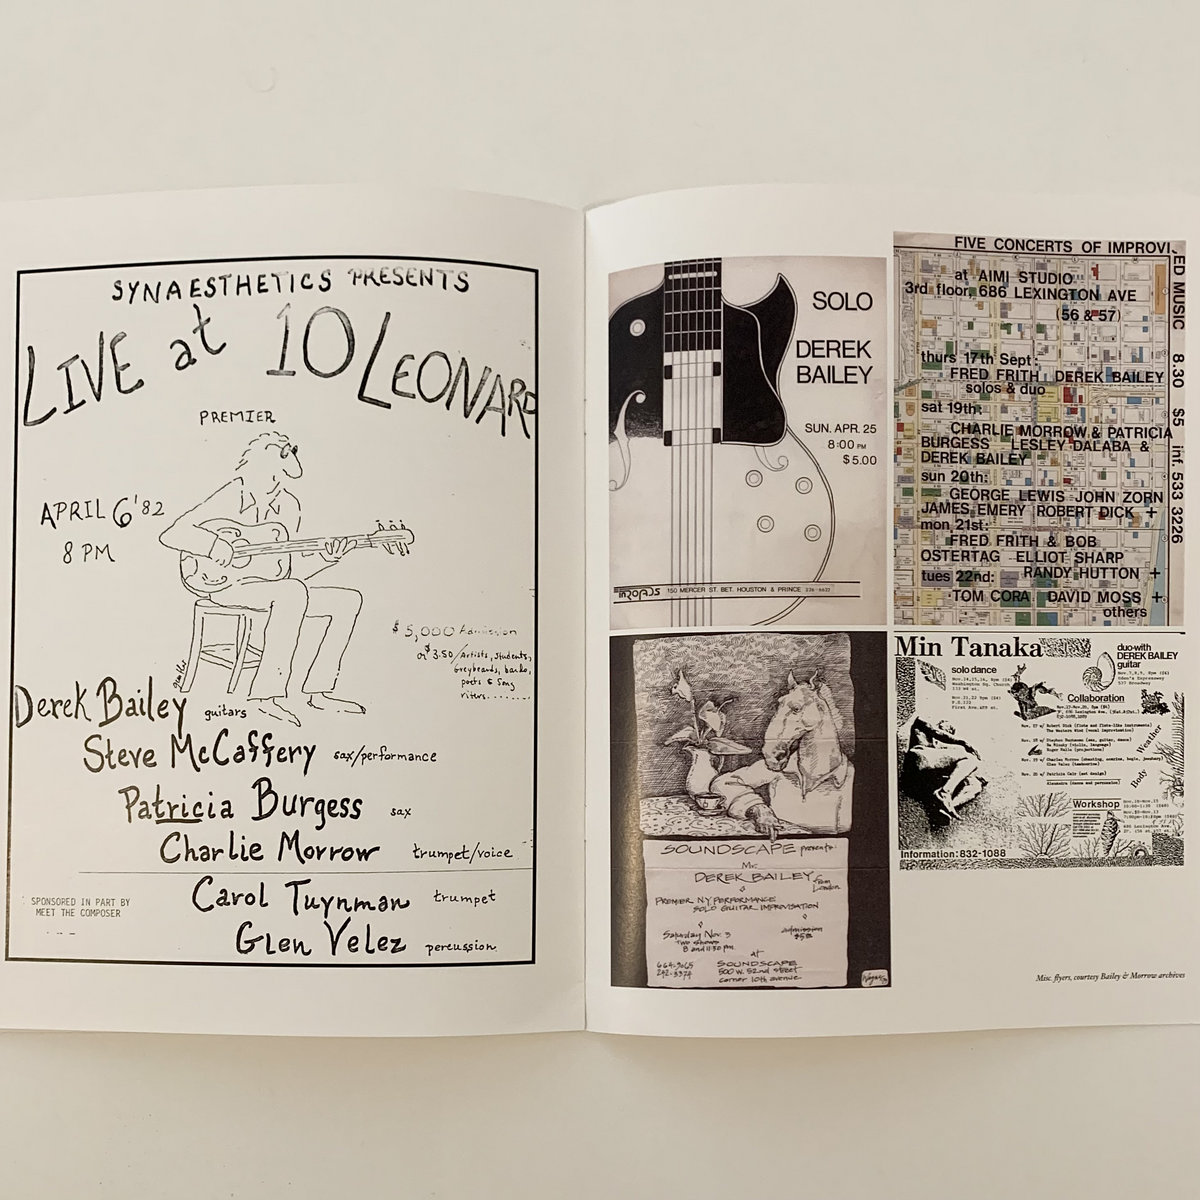 SYNAESTHETICS PRESENTS
LIVE at 10 LEONARD
PREMIER
APRIL 6 '82
8 PM
$5,000 Admission
or $3.50/Artists, Students,
Greybeards, bards,
poets & Song
riters........
Derek Bailey guitars
Steve McCaffery sax/performance
Patricia Burgess sax
Charlie Morrow trumpet/voice
Carol Tuynman trumpet
Glen Velez percussion
SPONSORED IN PART BY
MEET THE COMPOSER
SOLO
DEREK
BAILEY
SUN. APR. 25
8:00 PM
$5.00
INROADS 150 MERCER ST. BET. HOUSTON & PRINCE 226-6622
FIVE CONCERTS OF IMPROVI,ED MUSIC 8.30 $5 inf. 533 3226
at AIMI STUDIO
3rd floor, 686 LEXINGTON AVE
(56 & 57)
thurs 17th Sept:
FRED FRITH DEREK BAILEY
solos & duo
sat 19th:
CHARLIE MORROW & PATRICIA
BURGESS LESLEY DALABA &
DEREK BAILEY
sun 20th:
GEORGE LEWIS JOHN ZORN
JAMES EMERY ROBERT DICK +
mon 21st:
FRED FRITH & BOB
OSTERTAG ELLIOT SHARP
tues 22nd: RANDY HUTTON +
TOM CORA DAVID MOSS +
others
SOUNDSCAPE presents
Mr.
DEREK BAILEY from
London
PREMIER NY PERFORMANCE
SOLO GUITAR IMPROVISATION
Saturday Nov. 3
Two shows
8 and 11:30 pm
admission
$5
at
SOUNDSCAPE
500 W. 52nd street
corner 10th avenue
242-3374
Min Tanaka
solo dance
duo with
DEREK BAILEY
guitar
Collaboration
Body Weather
Workshop
Information: 832-1088
Misc. flyers, courtesy Bailey & Morrow archives